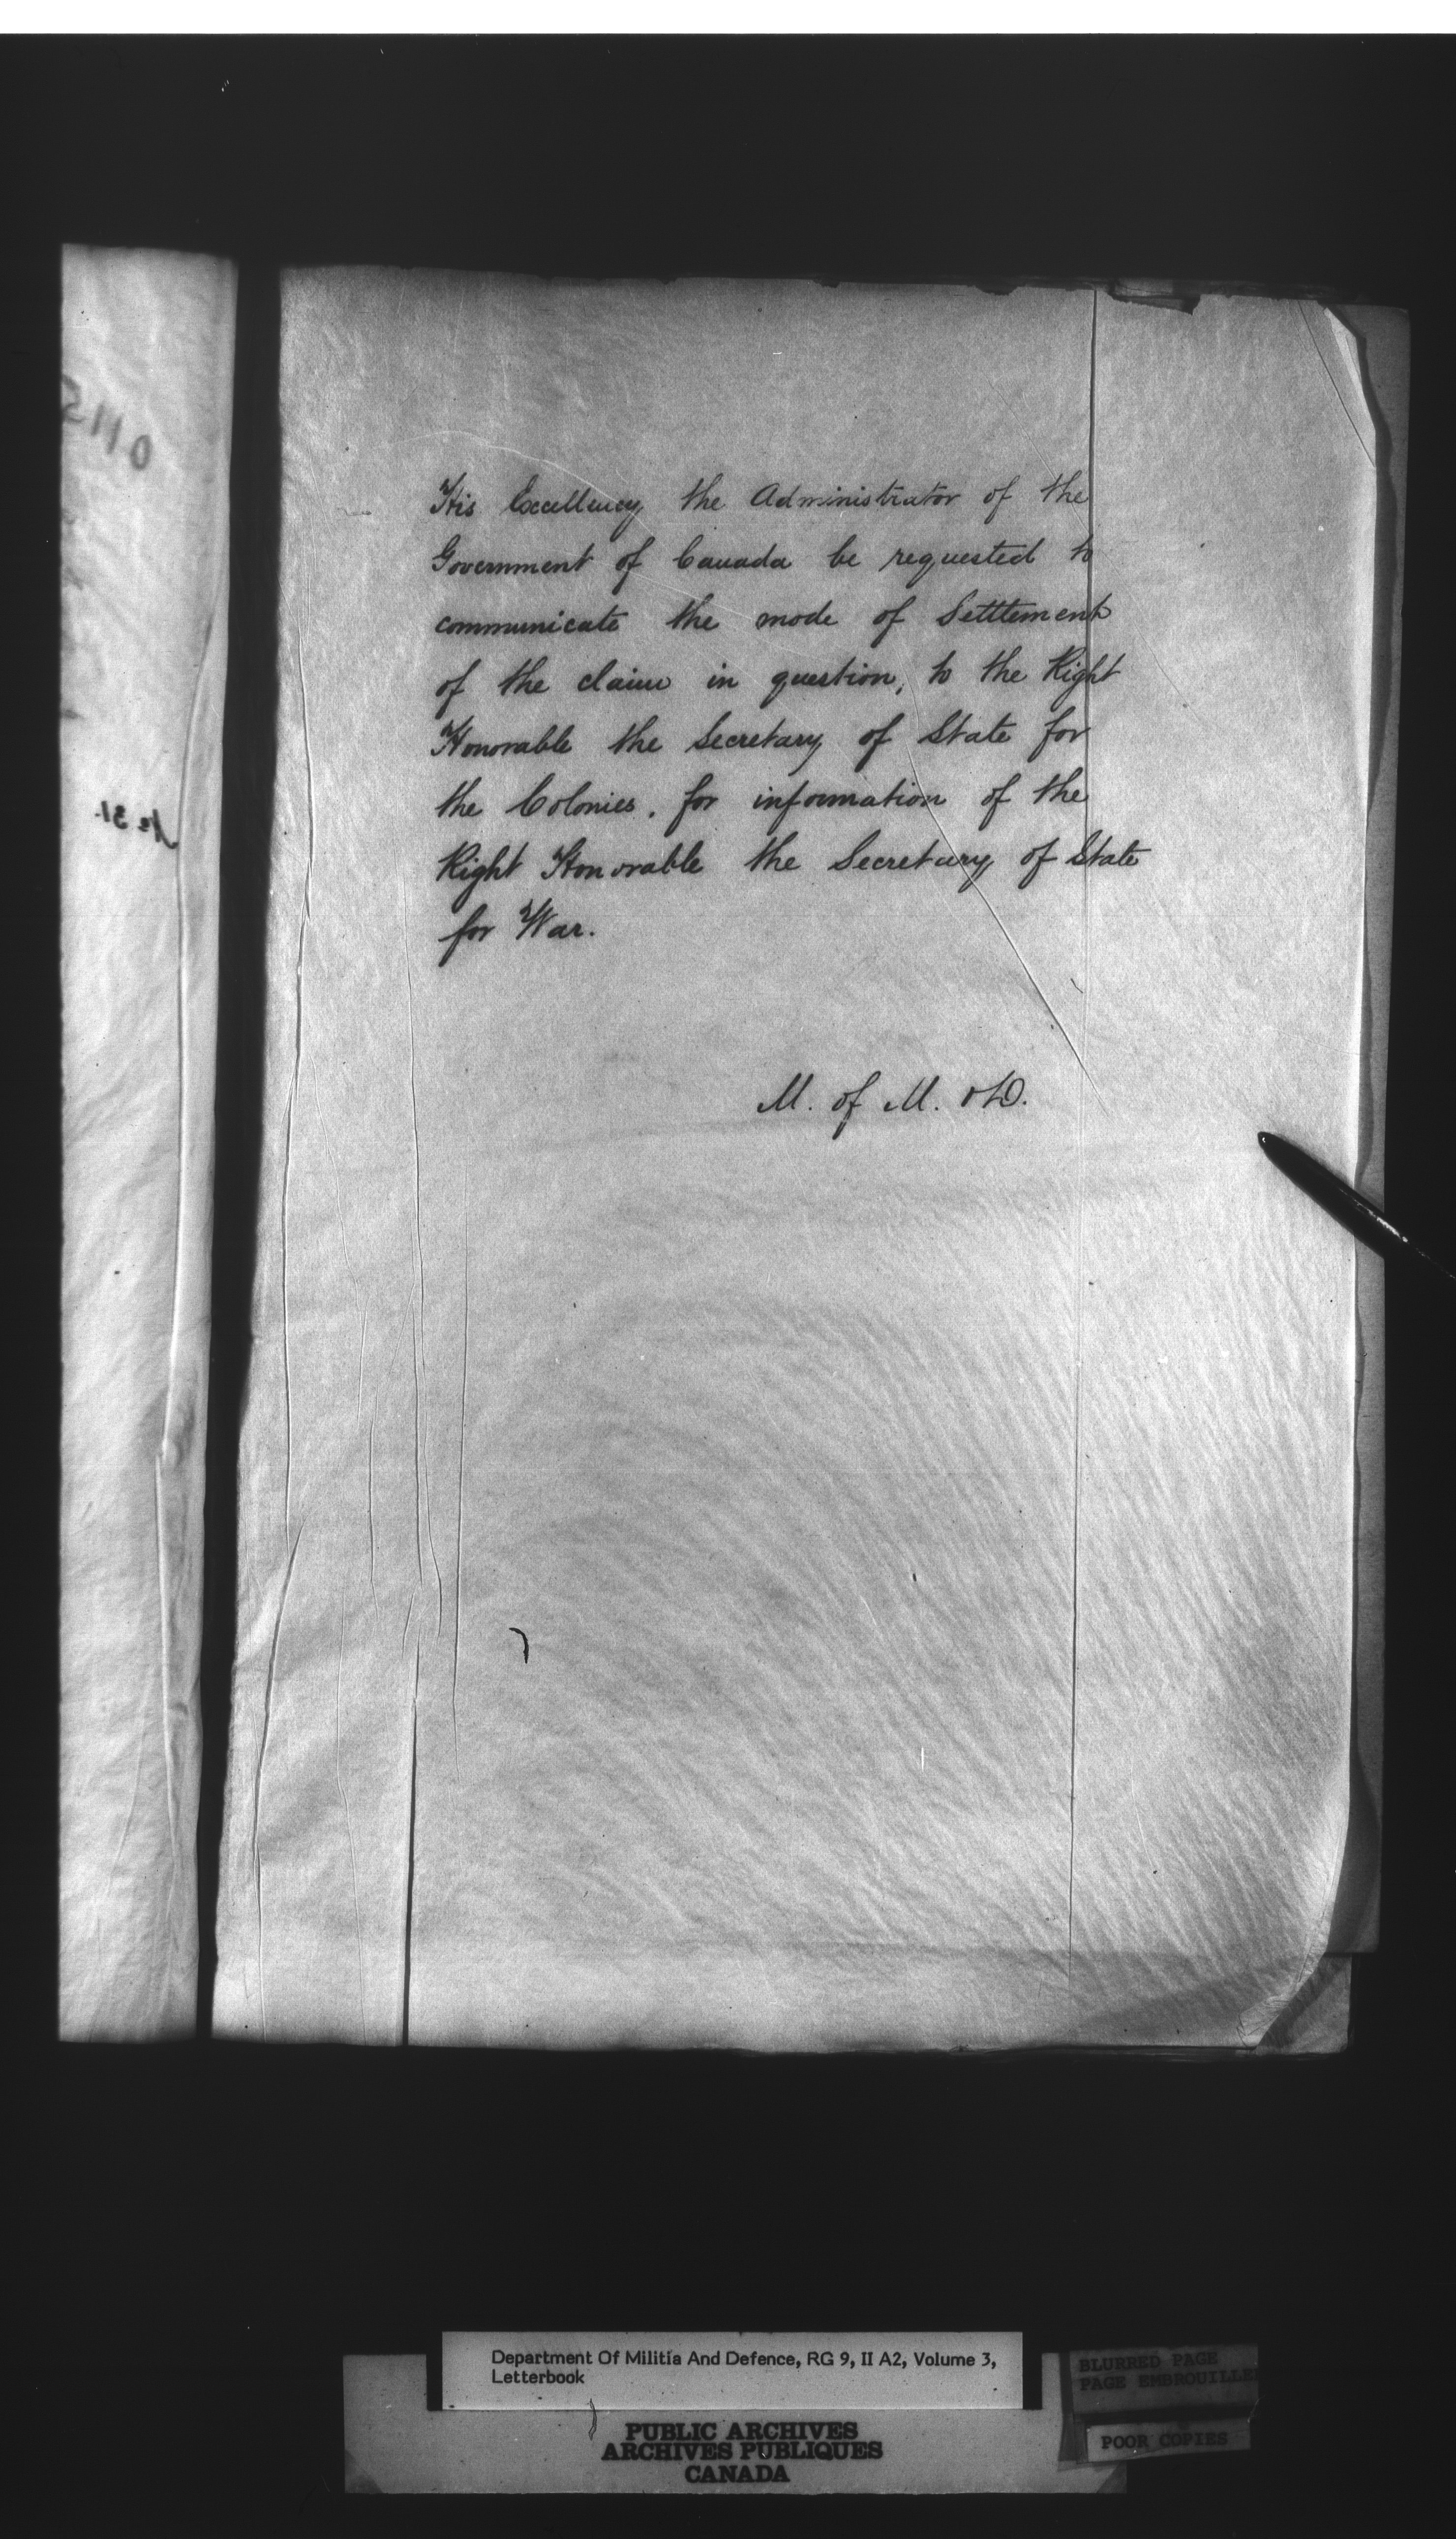 0115
No 31.
His Excellency the Administrator of the
Government of Canada be requested to
communicate the mode of Settlement
of the claim in question, to the Right
Honorable the Secretary of State for
the Colonies, for information of the
Right Honorable the Secretary of State
for War.
M. of M. & D.
Department Of Militia And Defence, RG 9, II A2, Volume 3,
Letterbook
PUBLIC ARCHIVES
ARCHIVES PUBLIQUES
CANADA
BLURRED PAGE
PAGE EMBROUILLE
POOR COPIES